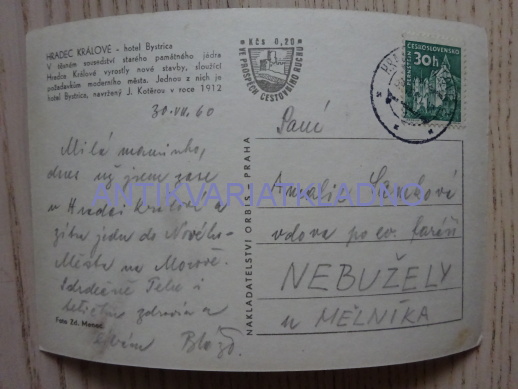 HRADEC KRÁLOVÉ - hotel Bystrice
V těsném sousedství starého památného jádra
Hradce Králové vyrostly nové stavby, sloužící
požadavkům moderního města. Jednou z nich je
hotel Bystrice, navržený J. Kotěrou v roce 1912
KČs 0,20
VE PROSPĚCH CESTOVNÍHO RUCHU
ČESKOSLOVENSKO
30h
PERNŠTEJN
30.VII.60
Milá maminko,
dnes už jsem zase
v Hradci Králové a
zítra jedu do Nového
Města na Moravě.
Srdečně Tebe i
tetičku zdravím a
líbám
Foto Zd. Menec
NAKLADATELSTVÍ ORBIS, PRAHA
Paní
Amalie
vdova po ev. faráři
NEBUŽELY
u MĚLNÍKA
ANTIKVARIATKLADNO